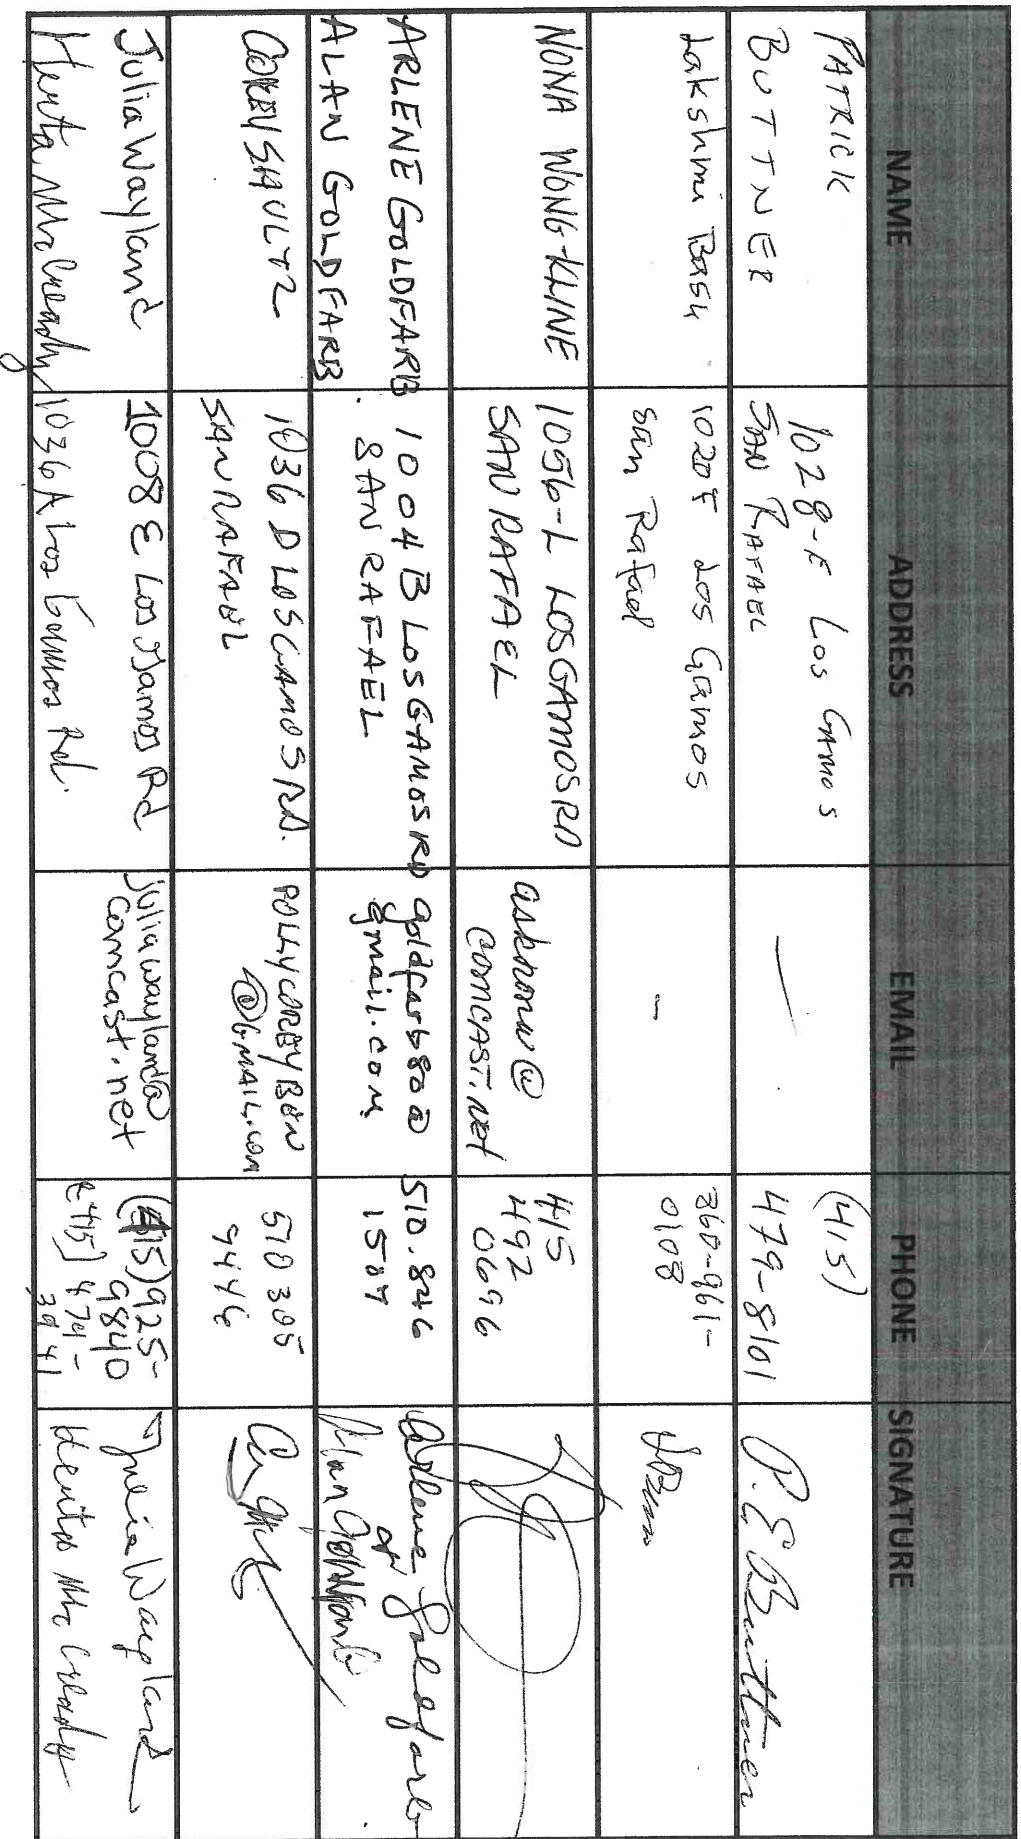 NAME ADDRESS EMAIL PHONE SIGNATURE
PATRICK
BUTTNER
1028-F Los Gamos
SAN RAFAEL
—
(415)
479-8101
P. E. Buttner
Lakshmi Basu
1020F Los Gamos
San Rafael
-
360-961-
0108
NONA WONG-KLINE
1056-L LOS GAMOS RD
SAN RAFAEL
asknonw@
COMCAST.net
415
492
0696
ARLENE GOLDFARB
ALAN GOLDFARB
1004B LOS GAMOS RD
SAN RAFAEL
goldfarb80@
gmail.com
510.846
1507
Arlene Goldfarb
or
Alan Goldfarb
COREY SHULTZ
1036 D LOS GAMOS RD.
SAN RAFAEL
POLLYCOREYBEN
@GMAIL.COM
510 305
9446
Julia Wayland
1008 E Los Gamos Rd
juliawayland@
comcast.net
(415) 925-
9840
Julia Wayland
Herta McCready
1036 A Los Gamos Rd.
(415) 479-
3941
Herta McCready